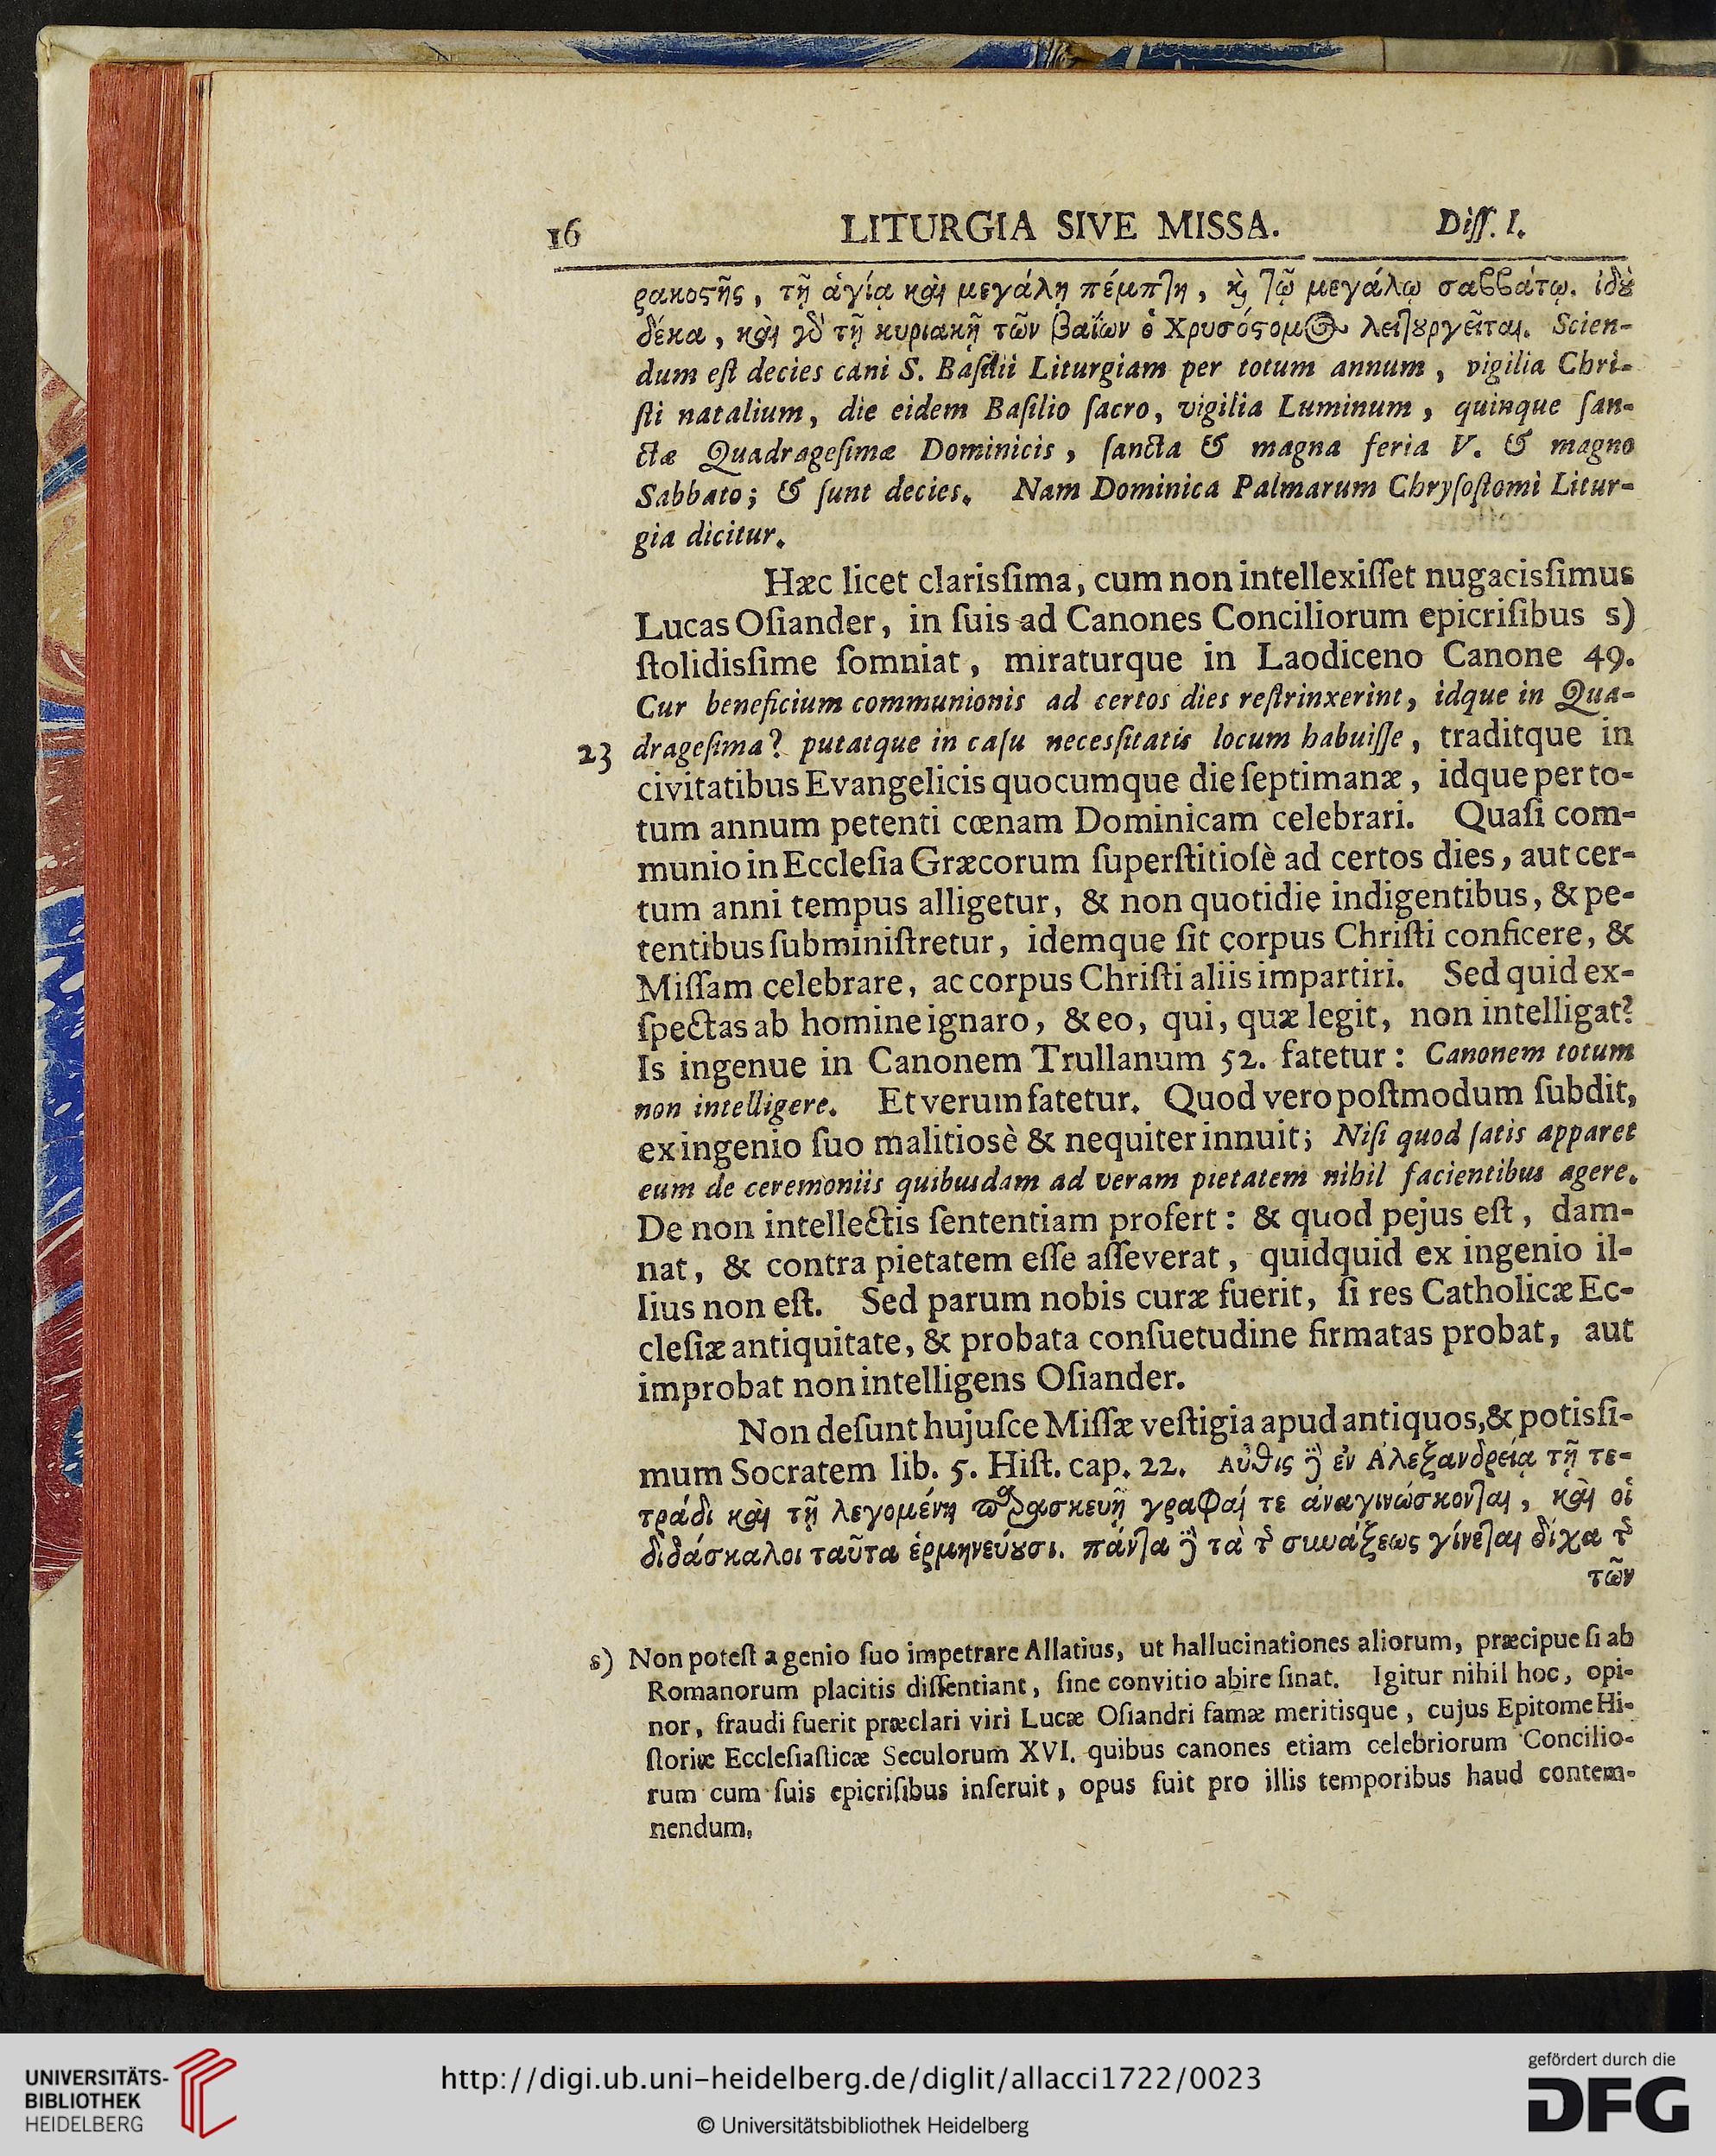 16 LITURGIA SIVE MISSA. Diſſ. I.
ρακοϛῆς, τῇ ἁγίᾳ καὶ μεγάλῃ πέμπτῃ, ϗ τῷ μεγάλῳ σαββάτῳ. ἰδȣ̀
δέκα, καὶ γδ τῇ κυριακῇ τῶν βαΐων ὁ Χρυσόϛομος λειτȣργεῖται. Scien-
dum eſt decies cani S. Baſilii Liturgiam per totum annum, vigilia Chri-
ſti natalium, die eidem Baſilio ſacro, vigilia Luminum, quinque ſan-
ctæ Quadrageſimæ Dominicis, ſancta & magna feria V. & magno
Sabbato; & ſunt decies. Nam Dominica Palmarum Chryſoſtomi Litur-
gia dicitur.
Hæc licet clarisſima, cum non intellexiſſet nugacisſimus
Lucas Oſiander, in ſuis ad Canones Conciliorum epicriſibus s)
ſtolidisſime ſomniat, miraturque in Laodiceno Canone 49.
Cur beneficium communionis ad certos dies reſtrinxerint, idque in Qua-
23 drageſima? putatque in caſu necesſitatis locum habuiſſe, traditque in
civitatibus Evangelicis quocumque die ſeptimanæ, idque per to-
tum annum petenti cœnam Dominicam celebrari. Quaſi com-
munio in Eccleſia Græcorum ſuperſtitioſè ad certos dies, aut cer-
tum anni tempus alligetur, & non quotidie indigentibus, & pe-
tentibus ſubminiſtretur, idemque ſit corpus Chriſti conficere, &
Miſſam celebrare, ac corpus Chriſti aliis impartiri. Sed quid ex-
ſpectas ab homine ignaro, & eo, qui, quæ legit, non intelligat?
Is ingenue in Canonem Trullanum 52. fatetur: Canonem totum
non intelligere. Et verum fatetur. Quod vero poſtmodum ſubdit,
ex ingenio ſuo malitiosè & nequiter innuit; Niſi quod ſatis apparet
eum de ceremoniis quibusdam ad veram pietatem nihil facientibus agere.
De non intellectis ſententiam profert: & quod pejus eſt, dam-
nat, & contra pietatem eſſe aſſeverat, quidquid ex ingenio il-
lius non eſt. Sed parum nobis curæ fuerit, ſi res Catholicæ Ec-
cleſiæ antiquitate, & probata conſuetudine firmatas probat, aut
improbat non intelligens Oſiander.
Non deſunt hujuſce Miſſæ veſtigia apud antiquos, & potisſi-
mum Socratem lib. 5. Hiſt. cap. 22. Αὖθις δὲ ἐν Ἀλεξανδρείᾳ τῇ τε-
τράδι καὶ τῇ λεγομένῃ παρασκευῇ γραφαί τε ἀναγινώσκονται, καὶ οἱ
διδάσκαλοι ταῦτα ἑρμηνεύȣσι. πάντα δὲ τὰ τ͂ συνάξεως γίνεται δίχα τ͂
τῶν
s) Non poteſt a genio ſuo impetrare Allatius, ut hallucinationes aliorum, præcipue ſi ab
Romanorum placitis diſſentiant, ſine convitio abire ſinat. Igitur nihil hoc, opi-
nor, fraudi fuerit præclari viri Lucæ Oſiandri famæ meritisque, cujus Epitome Hi-
ſtoriæ Eccleſiaſticæ Seculorum XVI. quibus canones etiam celebriorum Concilio-
rum cum ſuis epicriſibus inſeruit, opus fuit pro illis temporibus haud contem-
nendum.
UNIVERSITÄTS-
BIBLIOTHEK
HEIDELBERG
http://digi.ub.uni-heidelberg.de/diglit/allacci1722/0023
© Universitätsbibliothek Heidelberg
gefördert durch die
DFG